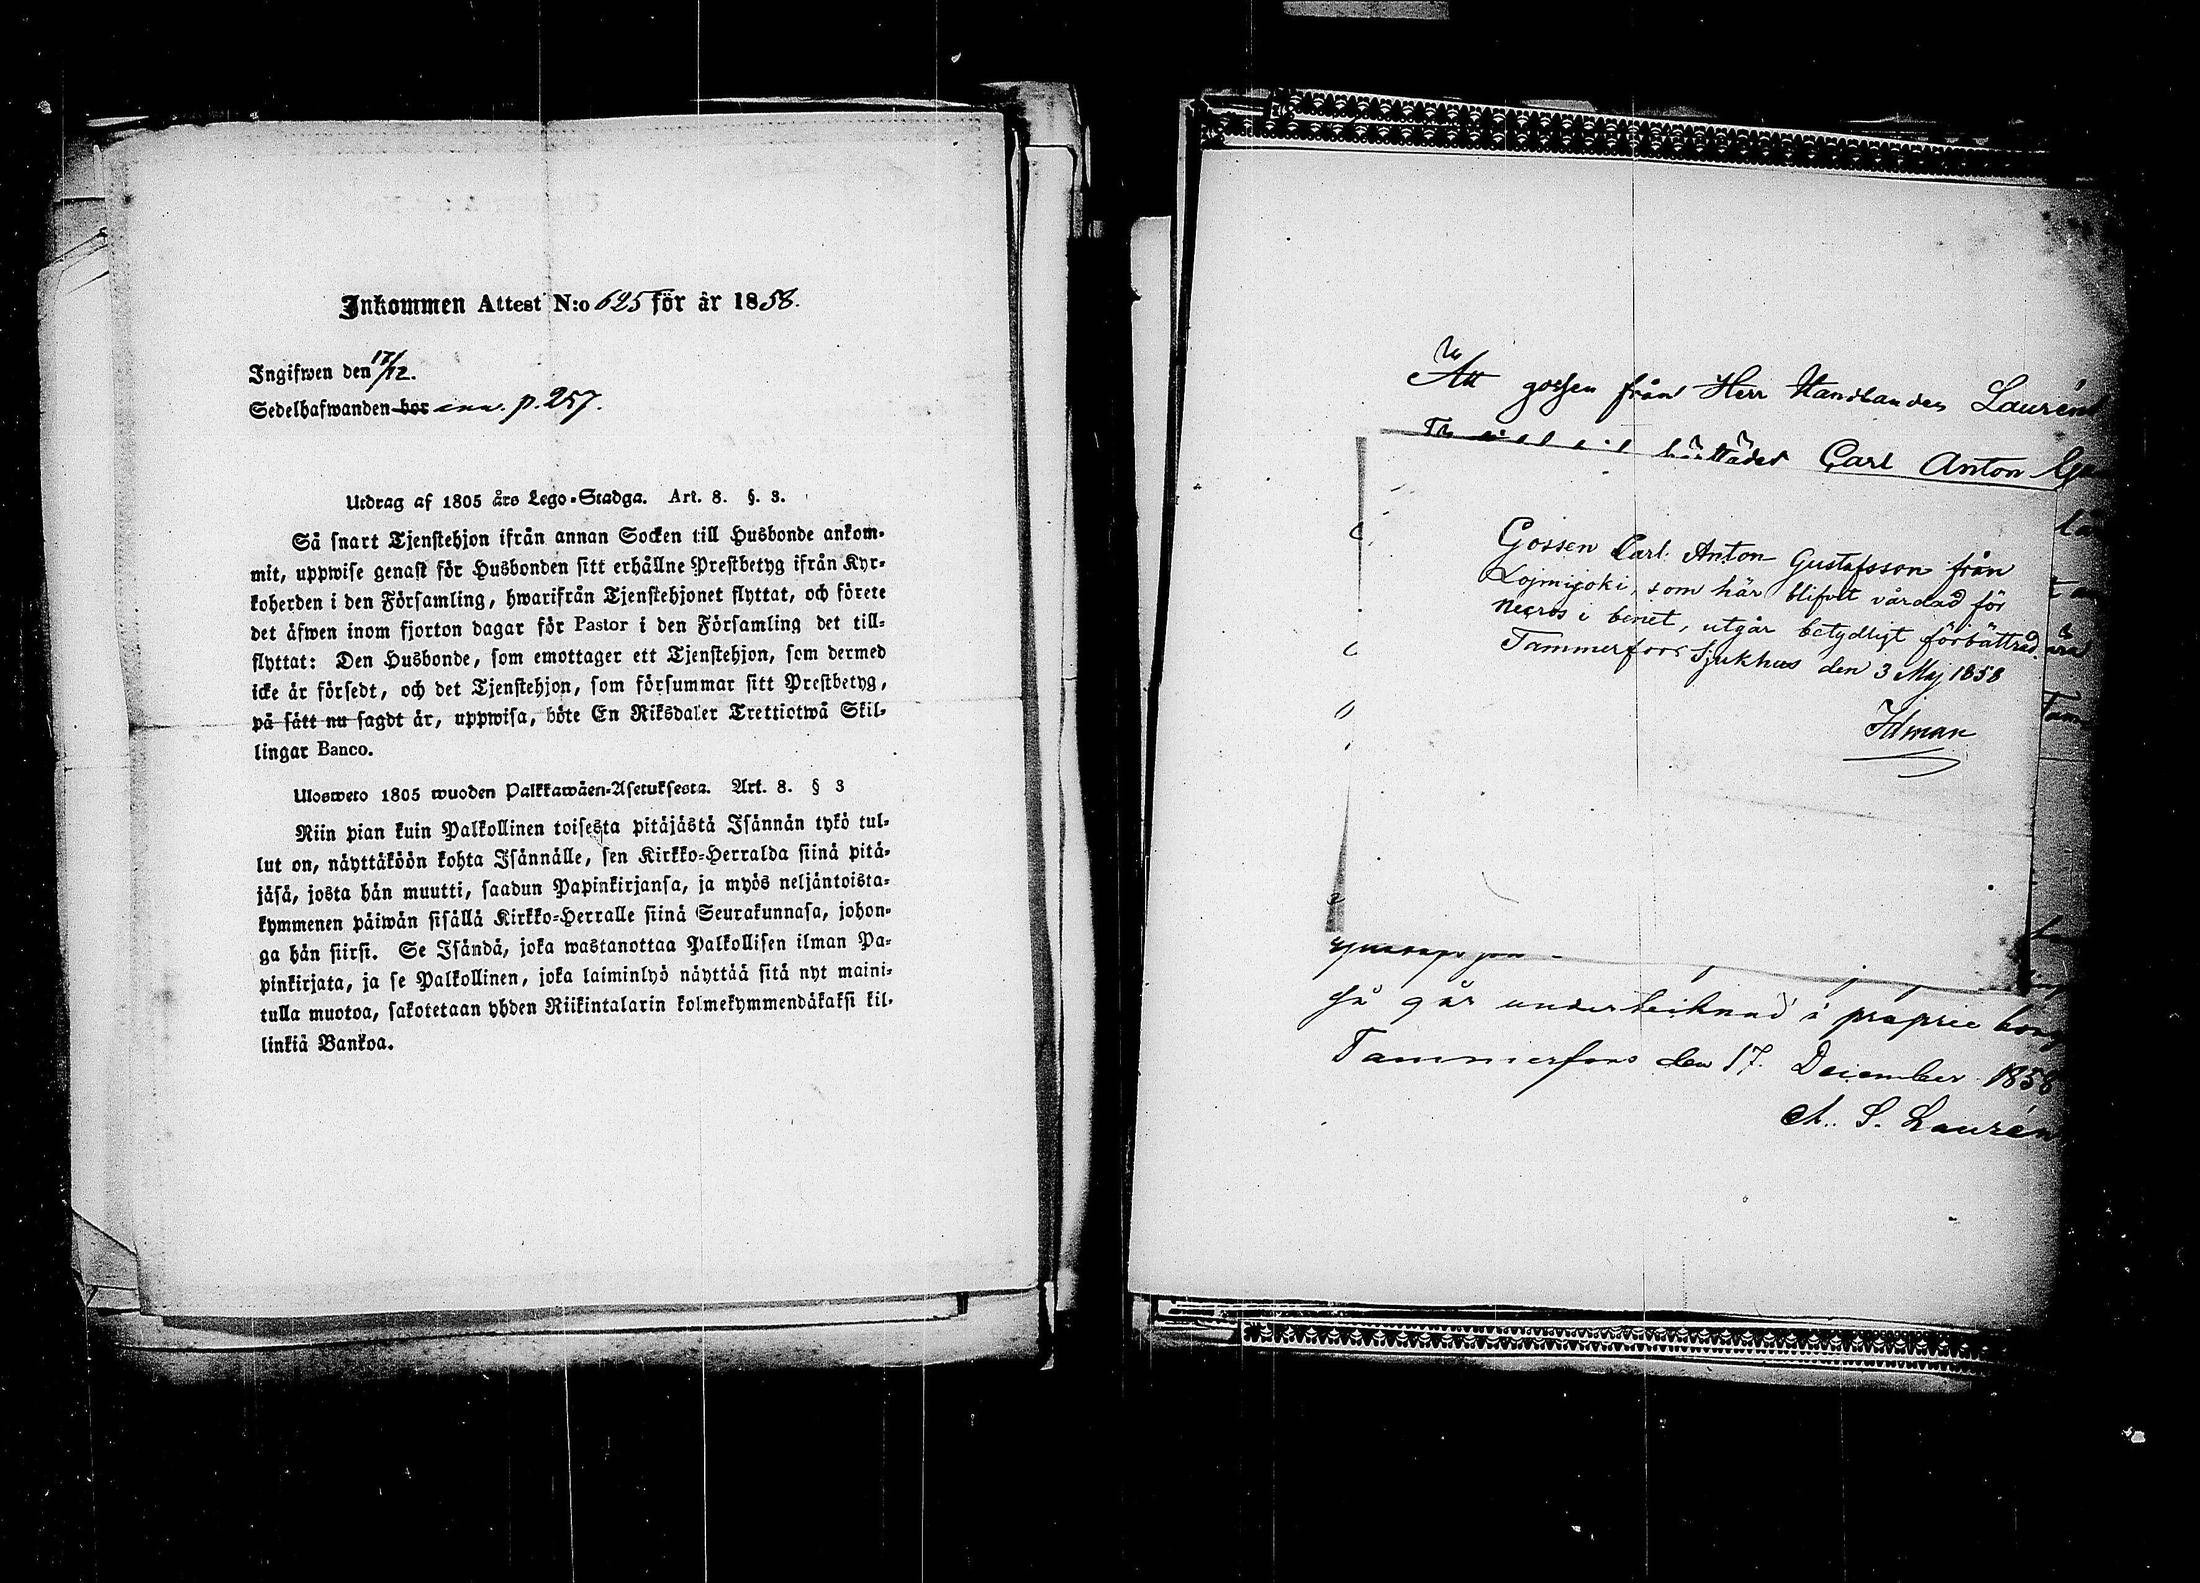 Inkommen Attest N:o 625 för år 1858.
Ingifwen den 17/12.
Sedelhafwanden bor inn. p. 257.
Utdrag af 1805 års Lego-Stadga. Art. 8. §. 3.
Så snart Tjenstehjon ifrån annan Socken till Husbonde ankom-
mit, uppwise genast för Husbonden sitt erhållne Prestbetyg ifrån Kyr-
koherden i den Församling, hwarifrån Tjenstehjonet flyttat, och förete
det äfwen inom fjorton dagar för Pastor i den Församling det till-
flyttat: Den Husbonde, som emottager ett Tjenstehjon, som dermed
icke är försedt, och det Tjenstehjon, som försummar sitt Prestbetyg,
på sätt nu sagdt är, uppwisa, böte En Riksdaler Trettiotwå Skil-
lingar Banco.
Ulosweto 1805 wuoden Palkkawäen-Asetuksesta. Art. 8. § 3
Niin pian kuin Palkollinen toisesta pitäjästä Isännän tykö tul-
lut on, näyttäköön kohta Isännälle, sen Kirkko-Herralda siinä pitä-
jäsä, josta hän muutti, saadun Papinkirjansa, ja myös neljäntoista-
kymmenen päiwän sisällä Kirkko-Herralle siinä Seurakunnasa, johon-
ga hän siirsi. Se Isändä, joka wastanottaa Palkollisen ilman Pa-
pinkirjata, ja se Palkollinen, joka laiminlyö näyttää sitä nyt maini-
tulla muotoa, sakotetaan yhden Riikintalarin kolmekymmendäkaksi kil-
linkiä Bankoa.
Att gossen från Herr Handlanden Laurén
Carl Anton
Gossen Carl Anton Gustafsson från
Lojmijoki, som här blifvit vårdad för
Necros i benet, utgår betydligt förbättrad.
Tammerfors Sjukhus den 3 Maj 1858
Idman
så går undertecknad i proprie
Tammerfors den 17. December 1858
A. S. Laurén